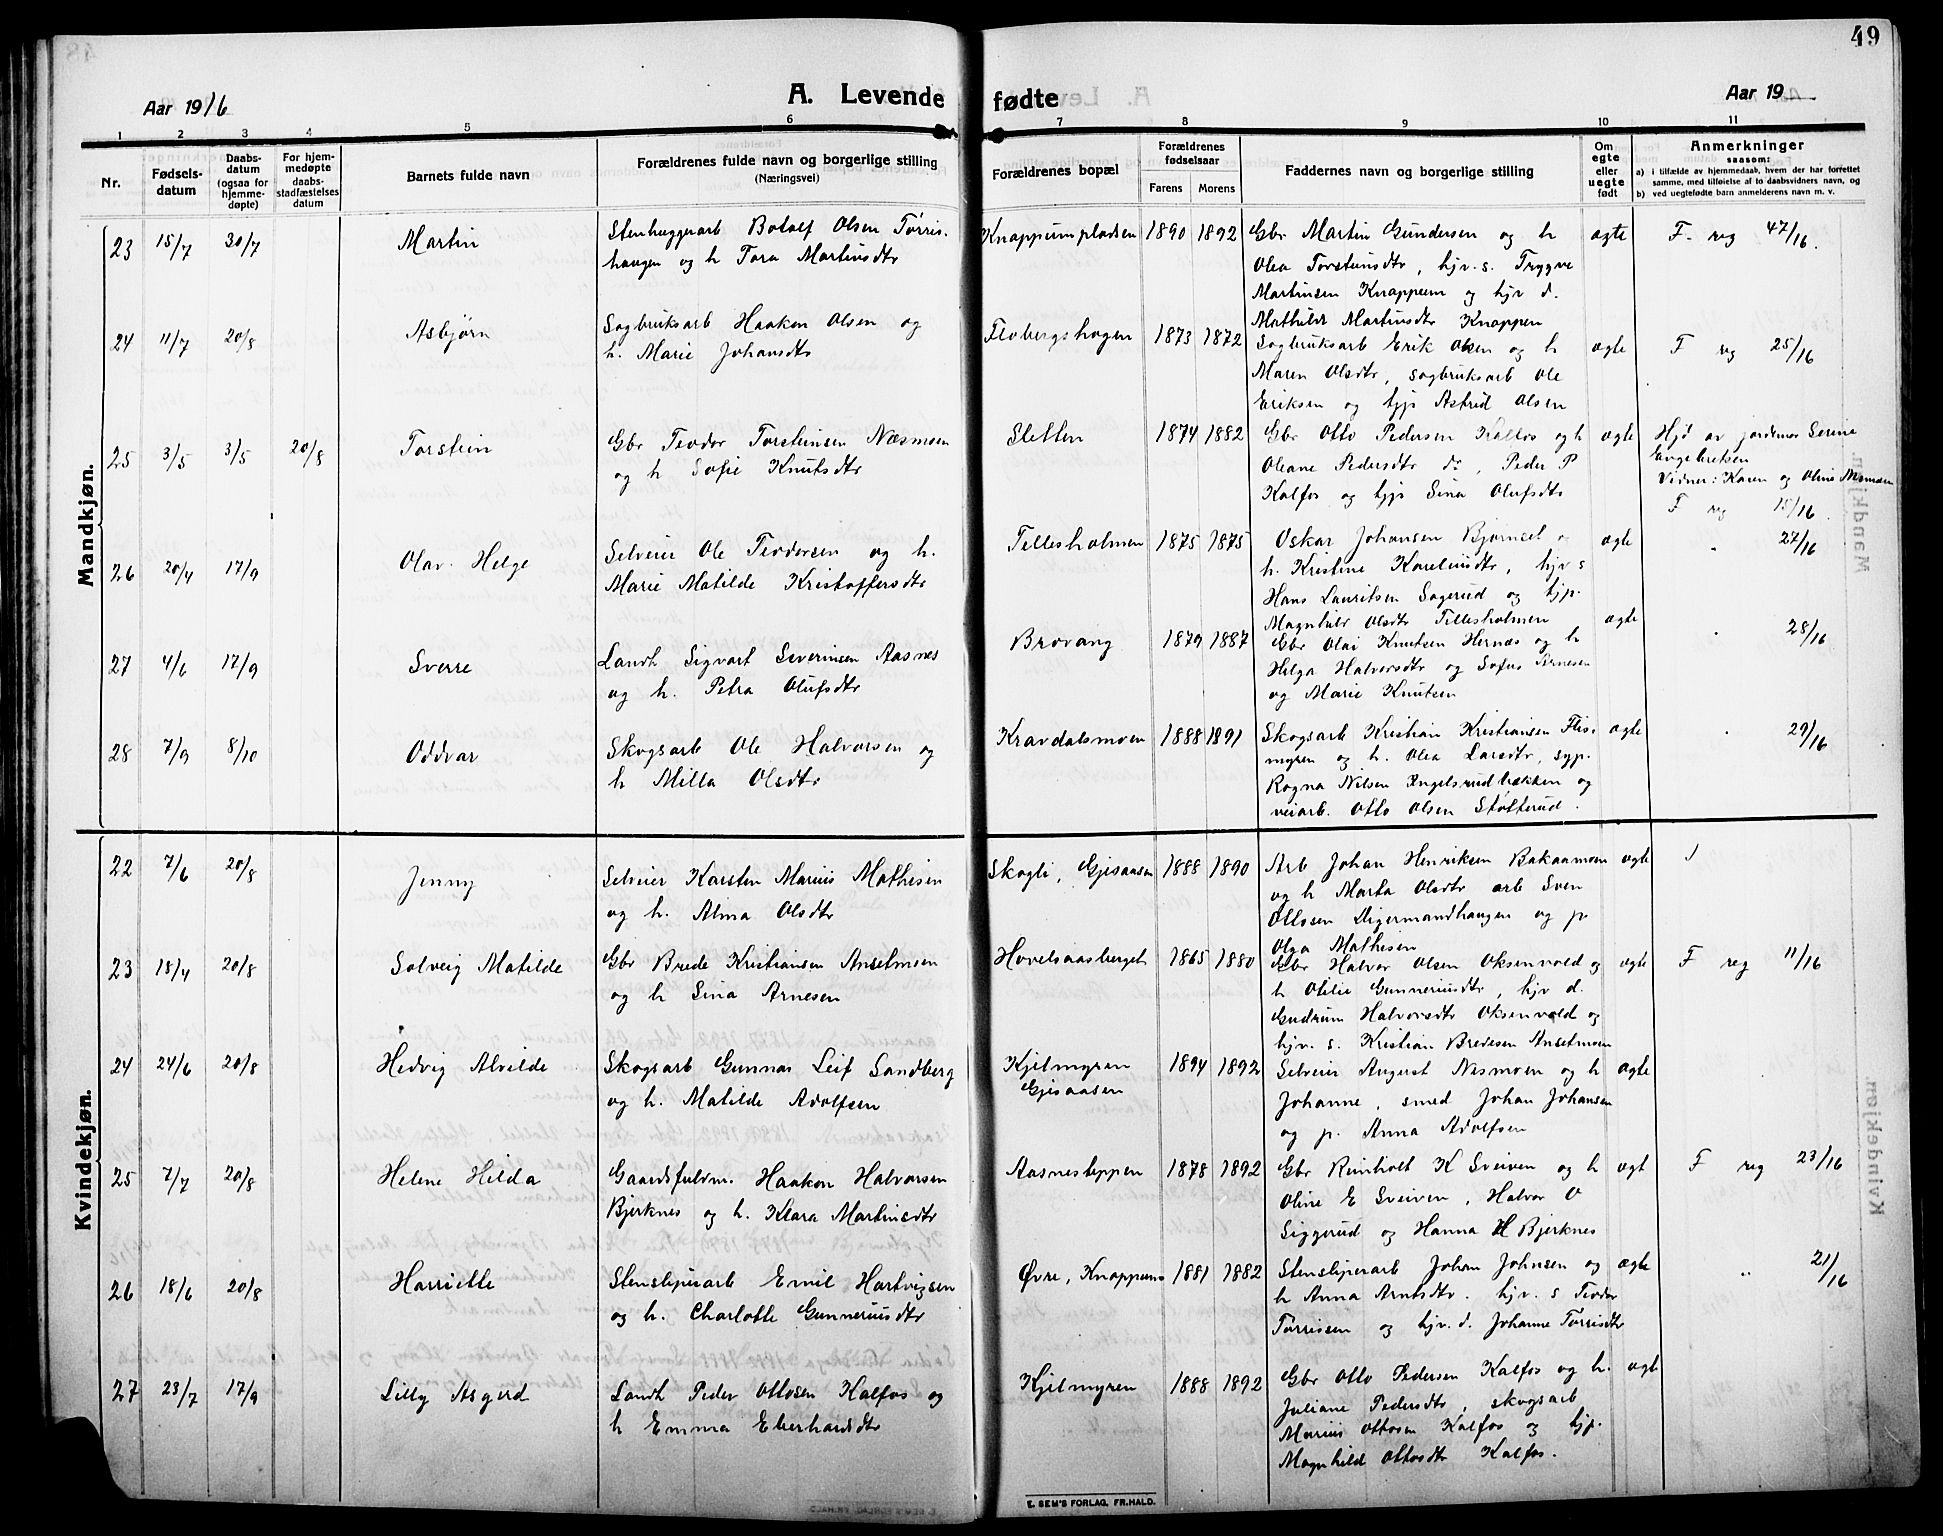 49
Aar 1916
A. Levende fødte
Aar 19
1 2 3 4 5 6 7 8 9 10 11
Nr.
Fødsels-
datum
Daabs-
datum
(ogsaa for
hjemme-
døpte)
For hjem-
medøpte
daabs-
stadfæstelses
datum
Barnets fulde navn
Forældrenes fulde navn og borgerlige stilling
(Næringsvei)
Forældrenes bopæl
Forældrenes
fødselsaar
Farens Morens
Faddernes navn og borgerlige stilling
Om
egte
eller
uegte
født
Anmerkninger
saasom:
a) i tilfælde av hjemmedaab, hvem der har forrettet
samme, med tilføielse af to daabsvidners navn, og
b) ved uegtefødte barn anmelderens navn m. v.
Mandkjøn.
23 15/7 30/7 Martin
Stenhuggerarb Botolf Olsen Tørris-
haugen og h Tora Martinsdtr
Knappumpladsen 1890 1892
Gbr Martin Gundersen og h
Olea Torsteinsdtr, hjv. s. Trygve
Martinsen Knappum og hjv d.
Mathilde Martinsdtr Knappen
ægte F. reg 47/16.
24 11/7 20/8 Asbjørn
Sagbruksarb Haakon Olsen og
h. Marie Johansdtr
Flobergshagen 1873 1872
Sagbruksarb Erik Olsen og h
Maren Olsdtr, sagbruksarb Ole
Eriksen og tjp Astrid Olsen
ægte F reg 25/16
25 3/5 3/5 20/8 Torstein
Gbr Teodor Torsteinsen Næsmoen
og h Sofie Knutsdtr
Sletten 1874 1882
Gbr Otto Pedersen Kalfos og h
Oleane Pedersdtr do, Peder P
Kalfos og tjp Sina Olufsdtr
ægte
Hjd av jordemor Serine
Engebretsen
Vidner: Karen og Oline Næsmoen
F reg 15/16
26 20/4 17/9 Olav Helge
Selveier Ole Teodorsen og h.
Marie Matilde Kristoffersdtr
Tellesholmen 1875 1875
Oskar Johansen Bjørneset o
h. Kristine Kareliusdtr, hjv s
Hans Lauritsen Sagerud og tjp.
Magnhild Olsdtr Tellesholmen
ægte " 27/16
27 4/6 17/9 Sverre
Landh Sigvart Severinsen Aasnes
og h. Petra Olufsdtr
Brovang 1879 1887
Gbr Olai Knutsen Hernæs og h
Helga Halvorsdtr og Sofus Arnesen
og Marie Knutsen
ægte " 28/16
28 7/9 8/10 Oddvar
Skogsarb Ole Halvorsen og
h Milla Olsdtr
Kravdalsmoen 1888 1891
Skogsarb Kristian Kristiansen Flis-
myren og h. Olea Larsdtr, syp.
Ragna Nilsen Engelsrudbækken og
veiarb. Otto Olsen Støtterud.
ægte " 29/16
Kvindekjøn.
22 7/6 20/8 Jenny
Selveier Karsten Marius Mathisen
og h. Alma Olsdtr
Skogli, Gjesaasen 1888 1890
Arb Johan Henriksen Bakaamoen
og h Marta Olsdtr arb Sven
Ottosen Digermandhaugen og p
Olga Mathisen
ægte
23 18/4 20/8 Solveig Matilde
Gbr Brede Kristiansen Anselmoen
og h Sina Arnesen
Hovelsaasberget 1865 1880
Gbr Halvor Olsen Oksenvold og
h Otilie Gunneriusdtr, hjv d.
Gudrun Halvorsdtr Oksenvold og
hjv. s. Kristian Bredesen Anselmoen
ægte F reg 11/16
24 24/6 20/8 Hedvig Alvilde
Skogsarb Gunnar Leif Sandberg
og h. Matilde Adolfsen
Kjelmyren
Gjesaasen
1894 1892
Selveier August Næsmoen og h
Johanne, smed Johan Johansen
og p. Anna Adolfsen
ægte
25 7/7 20/8 Helene Hilda
Gaardsfuldm. Haakon Halvorsen
Bjerknes og h. Klara Martinsdtr
Aasnesteppen 1878 1892
Gbr Reinholt K Sveiven og h
Oline E Sveiven, Halvor O
Siggerud og Hanna H Bjerknes
ægt F reg 23/16
26 18/6 20/8 Harriette
Stensliperarb Emil Hartvigsen
og h. Charlotte Gunneriusdtr
Øvre, Knappum 1881 1882
Stensliperarb Johan Johnsen og
h Anna Arntsdtr. hjv. s Teodor
Tørrissen og hjv. d. Johanne Tørrisdtr
ægte " 21/16
27 23/7 17/9 Lilly Asgerd
Landh Peder Ottosen Kalfos og
h Emma Eberhardsdtr
Kjelmyren 1888 1892
Gbr Otto Pedersen Kalfos og h.
Juliane Pedersdtr, skogsarb
Marius Ottosen Kalfos og tjp.
Magnhild Ottosdtr Kalfos.
ægte
E. SEM'S FORLAG, FR.HALD.